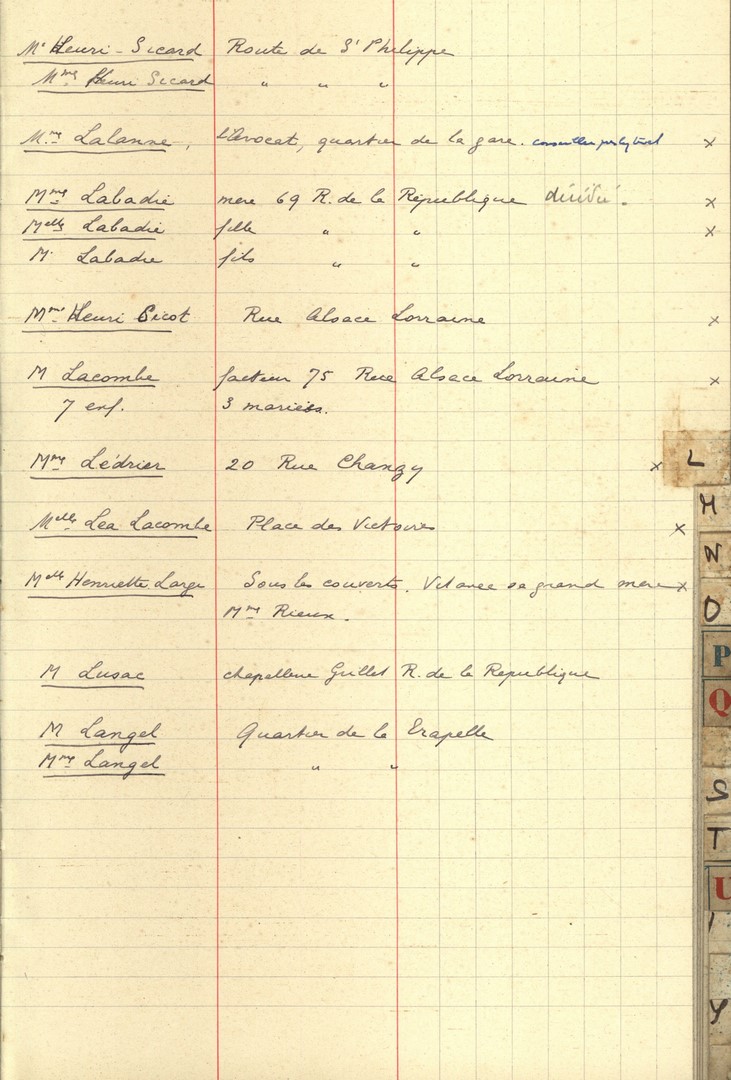 Mr Henri-Sicard Route de St Philippe
Mme Henri Sicard " " "
Mme Lalanne, l'Avocat, quartier de la gare. conseiller presbytéral x
Mme Labadie mère 69 R. de la République x
Melle Labadie fille " " x
M. Labadie fils " "
Mme Henri Sicot Rue Alsace Lorraine x
M Lacombe facteur 75 Rue Alsace Lorraine x
7 enf. 3 mariées.
Mme Lédrier 20 Rue Changy x
Melle Léa Lacombe Place des Victoires x
Melle Henriette Large Sous les couverts. Vit avec sa grand mère x
Mme Rieux.
M Lusac chapellerie Grillet R. de la République
M Langel Quartier de la
Mme Langel " "
L
M
N
O
P
Q
S
T
U
Y